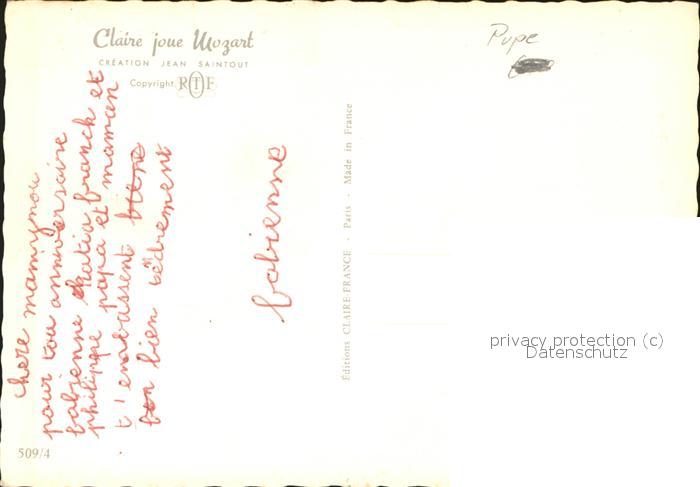 Claire joue Mozart
CRÉATION JEAN SAINTOUT
Copyright RTF
Pupe
chere mamynou
pour ton anniversaire
fabienne katia franck et
philippe papa et maman
t'embassent biene
bien tèdrement
fabienne
Editions CLAIRE-FRANCE - Paris - Made in France
privacy protection (c)
Datenschutz
509/4